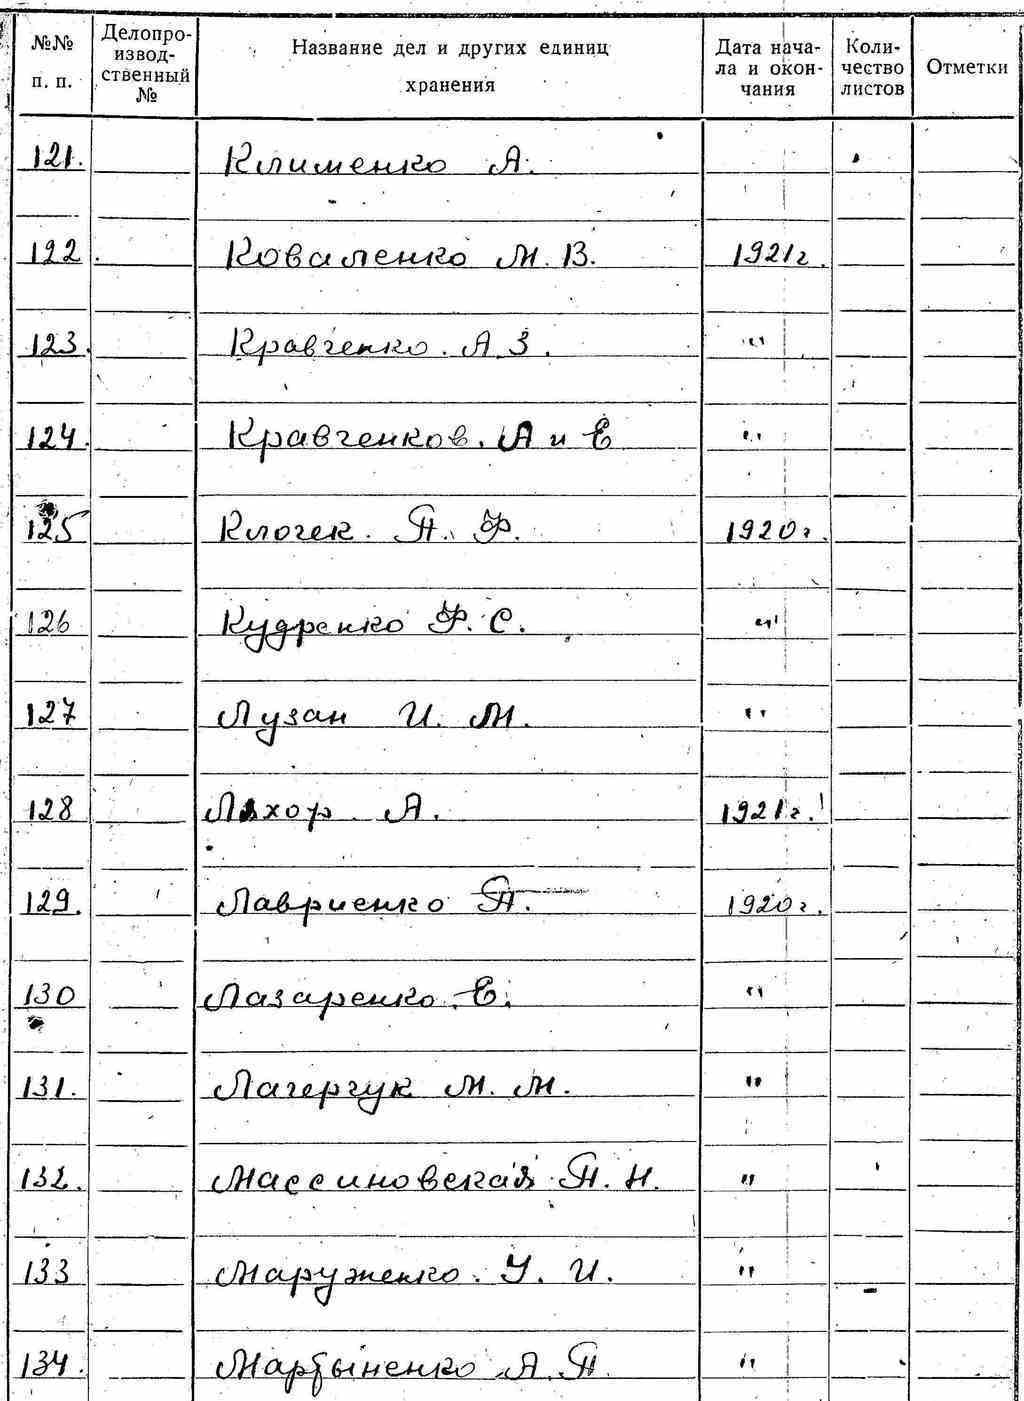 №№ п. п. Делопро-изводственный № Название дел и других единиц хранения Дата нача-ла и окон-чания Коли-чество листов Отметки
121. Клименко А.
122. Коваленко М. В. 1921г.
123. Кравченко. А З. "
124. Кравченков. А и Е "
125 Клочек. П. Ф. 1920г.
126 Кудренко Ф. С. "
127 Лузан И. М. "
128 Ляхор А. 1921г.
129. Лавриенко П. 1920г.
130 Лазаренко Е. "
131. Лагерчук М. М. "
132. Массиновская П. Н. "
133 Маруженко. У. И. "
134. Мартыненко А. П. "